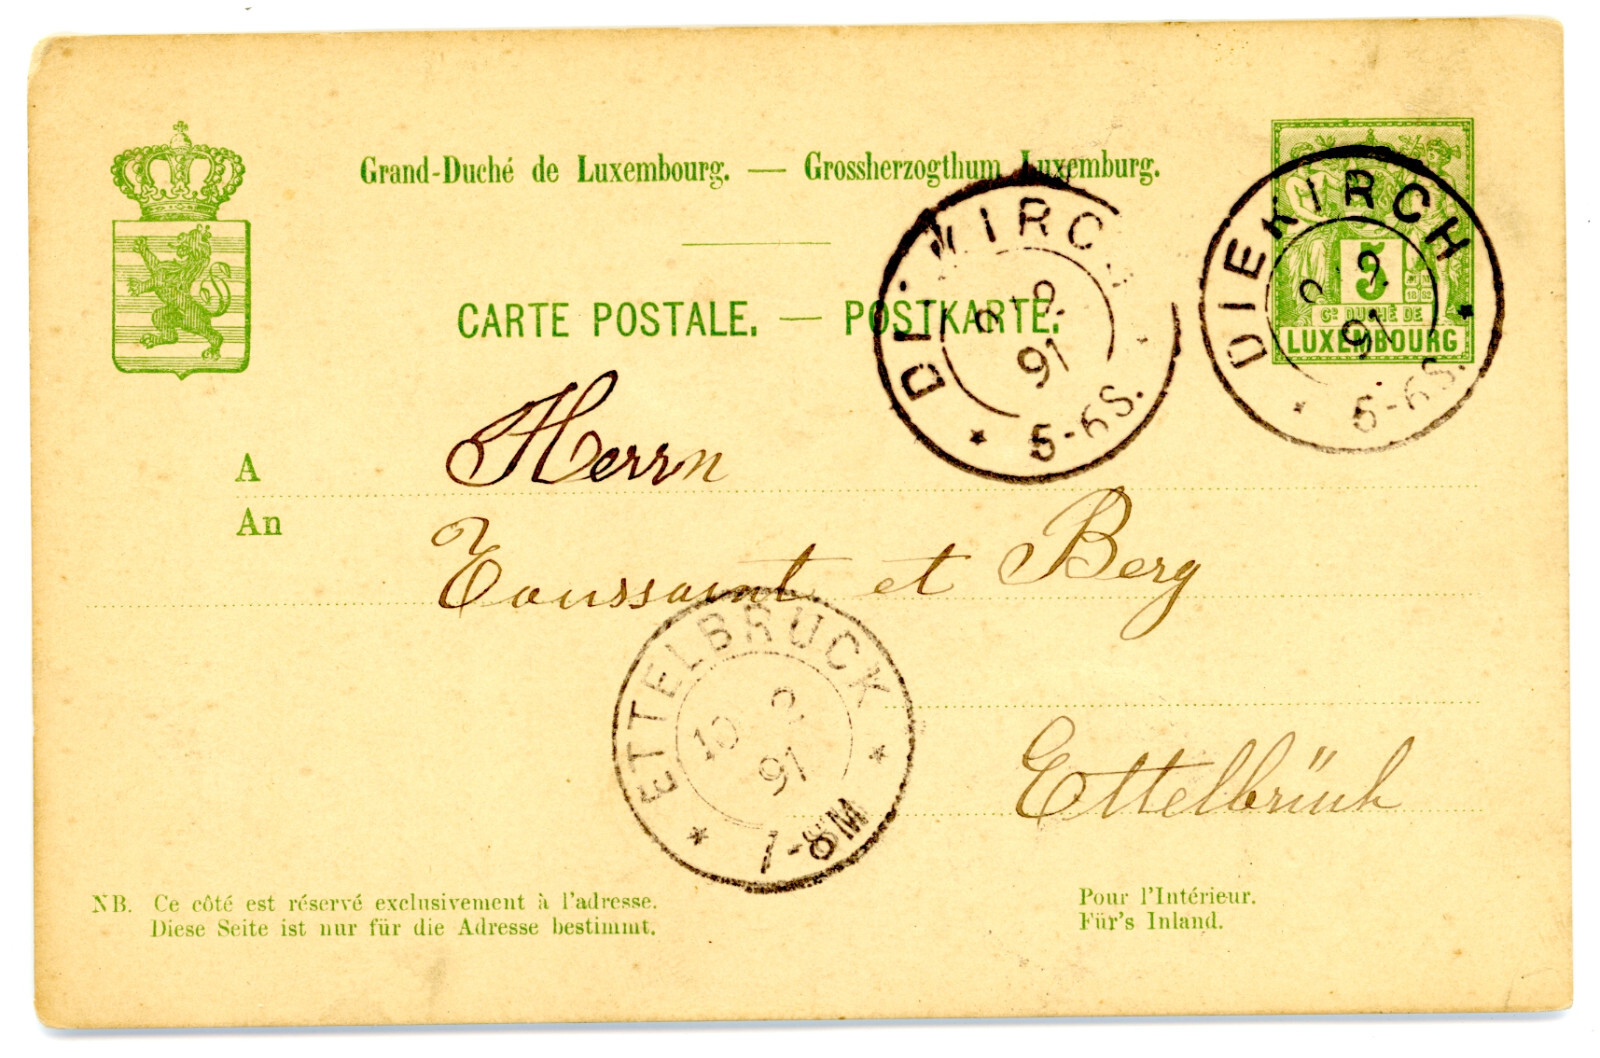 Grand-Duché de Luxembourg. — Grossherzogthum Luxemburg.
CARTE POSTALE. — POSTKARTE.
5
Gᴰ DUCHÉ DE
LUXEMBOURG
DIEKIRCH
9 2
91
5-6S.
DIEKIRCH
9 2
91
5-6S.
A Herrn
An
Toussaint et Berg
ETTELBRUCK
10 2
91
7-8M
Ettelbrück
NB. Ce côté est réservé exclusivement à l'adresse.
Diese Seite ist nur für die Adresse bestimmt.
Pour l'Intérieur.
Für's Inland.